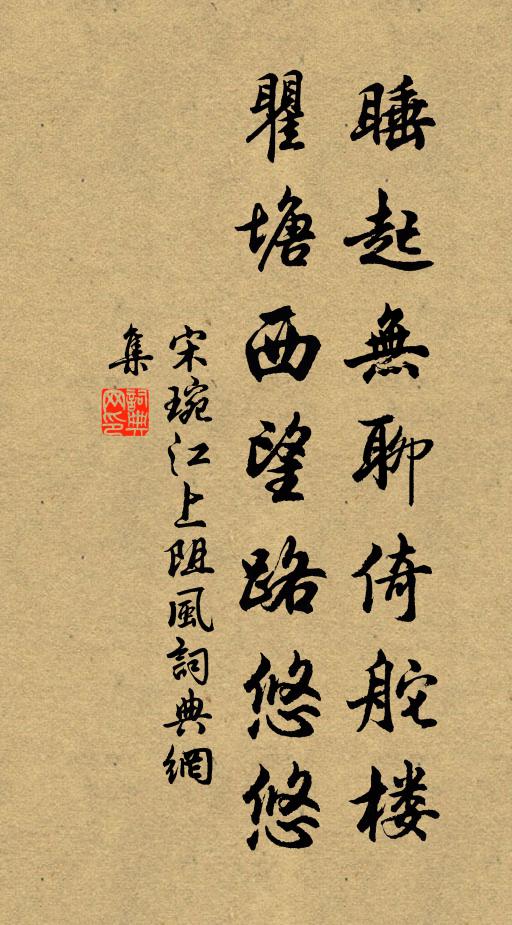 睡起無聊倚舵楼
瞿塘西望路悠悠
宋琬江上阻風詞典網
集
詞典
网印